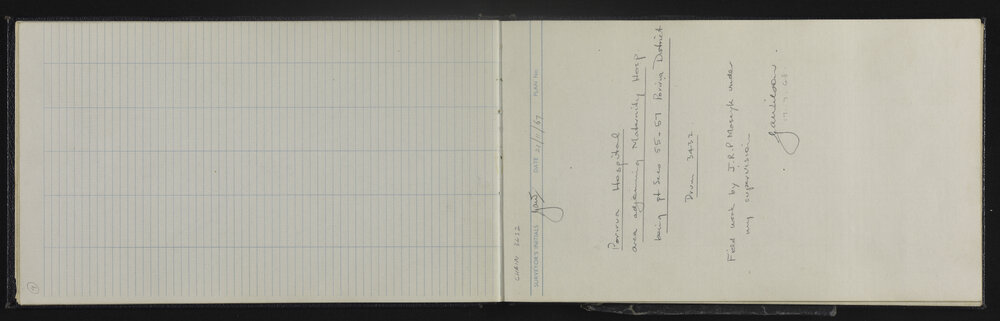 CHAIN 3632
SURVEYOR'S INITIALS DATE 20/11/67 PLAN No.
Porirua Hospital
area adjoining Maternity Hosp
being pt Secs 55-57 Porirua District
Drwn 3432
Field work by J.R.P. Moseyk under
my supervision
4